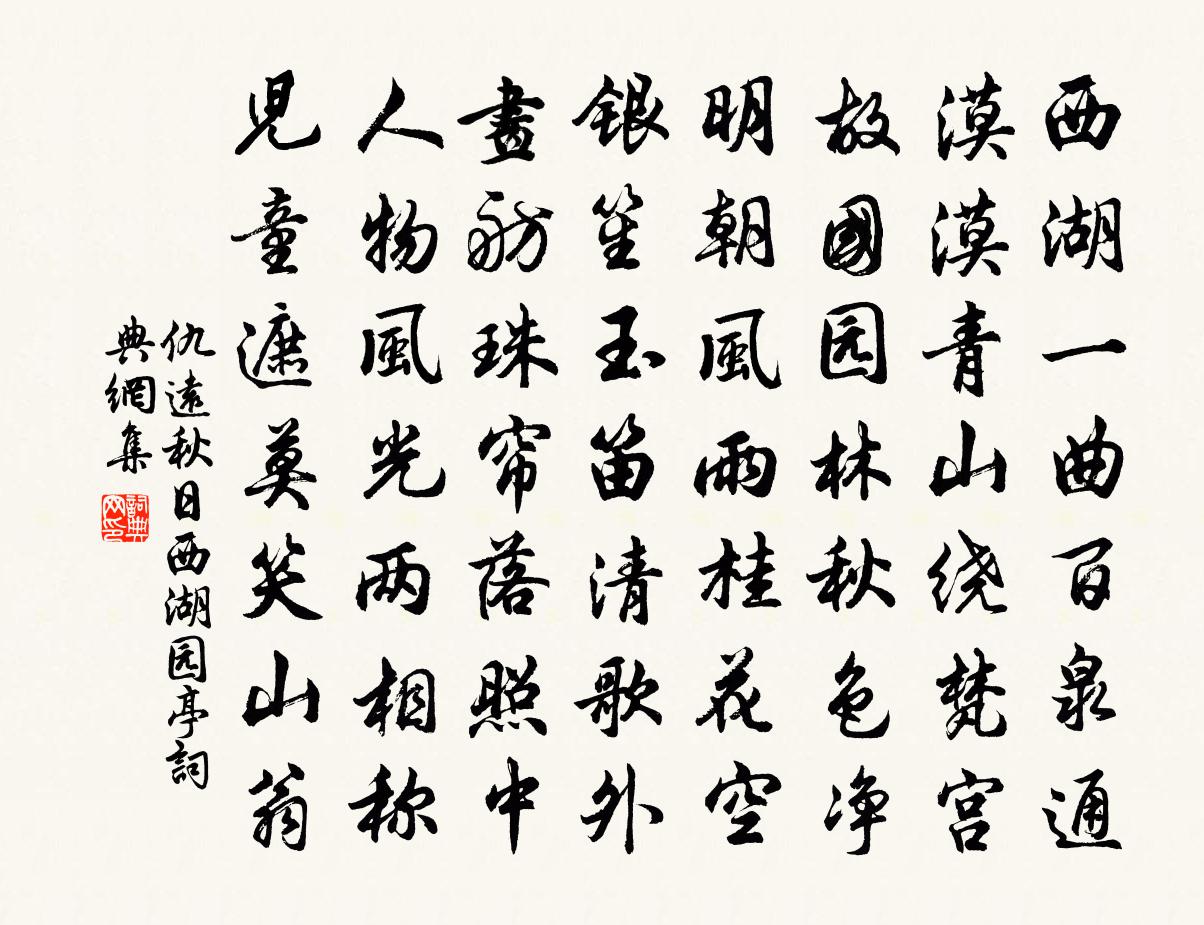 西湖一曲百泉通
漠漠青山绕梵宫
故國园林秋色净
明朝風雨桂花空
銀笙玉笛清歌外
畫舫珠帘落照中
人物風光两相称
児童遮莫笑山翁
仇遠秋日西湖园亭詞
典網集
詞典
网印